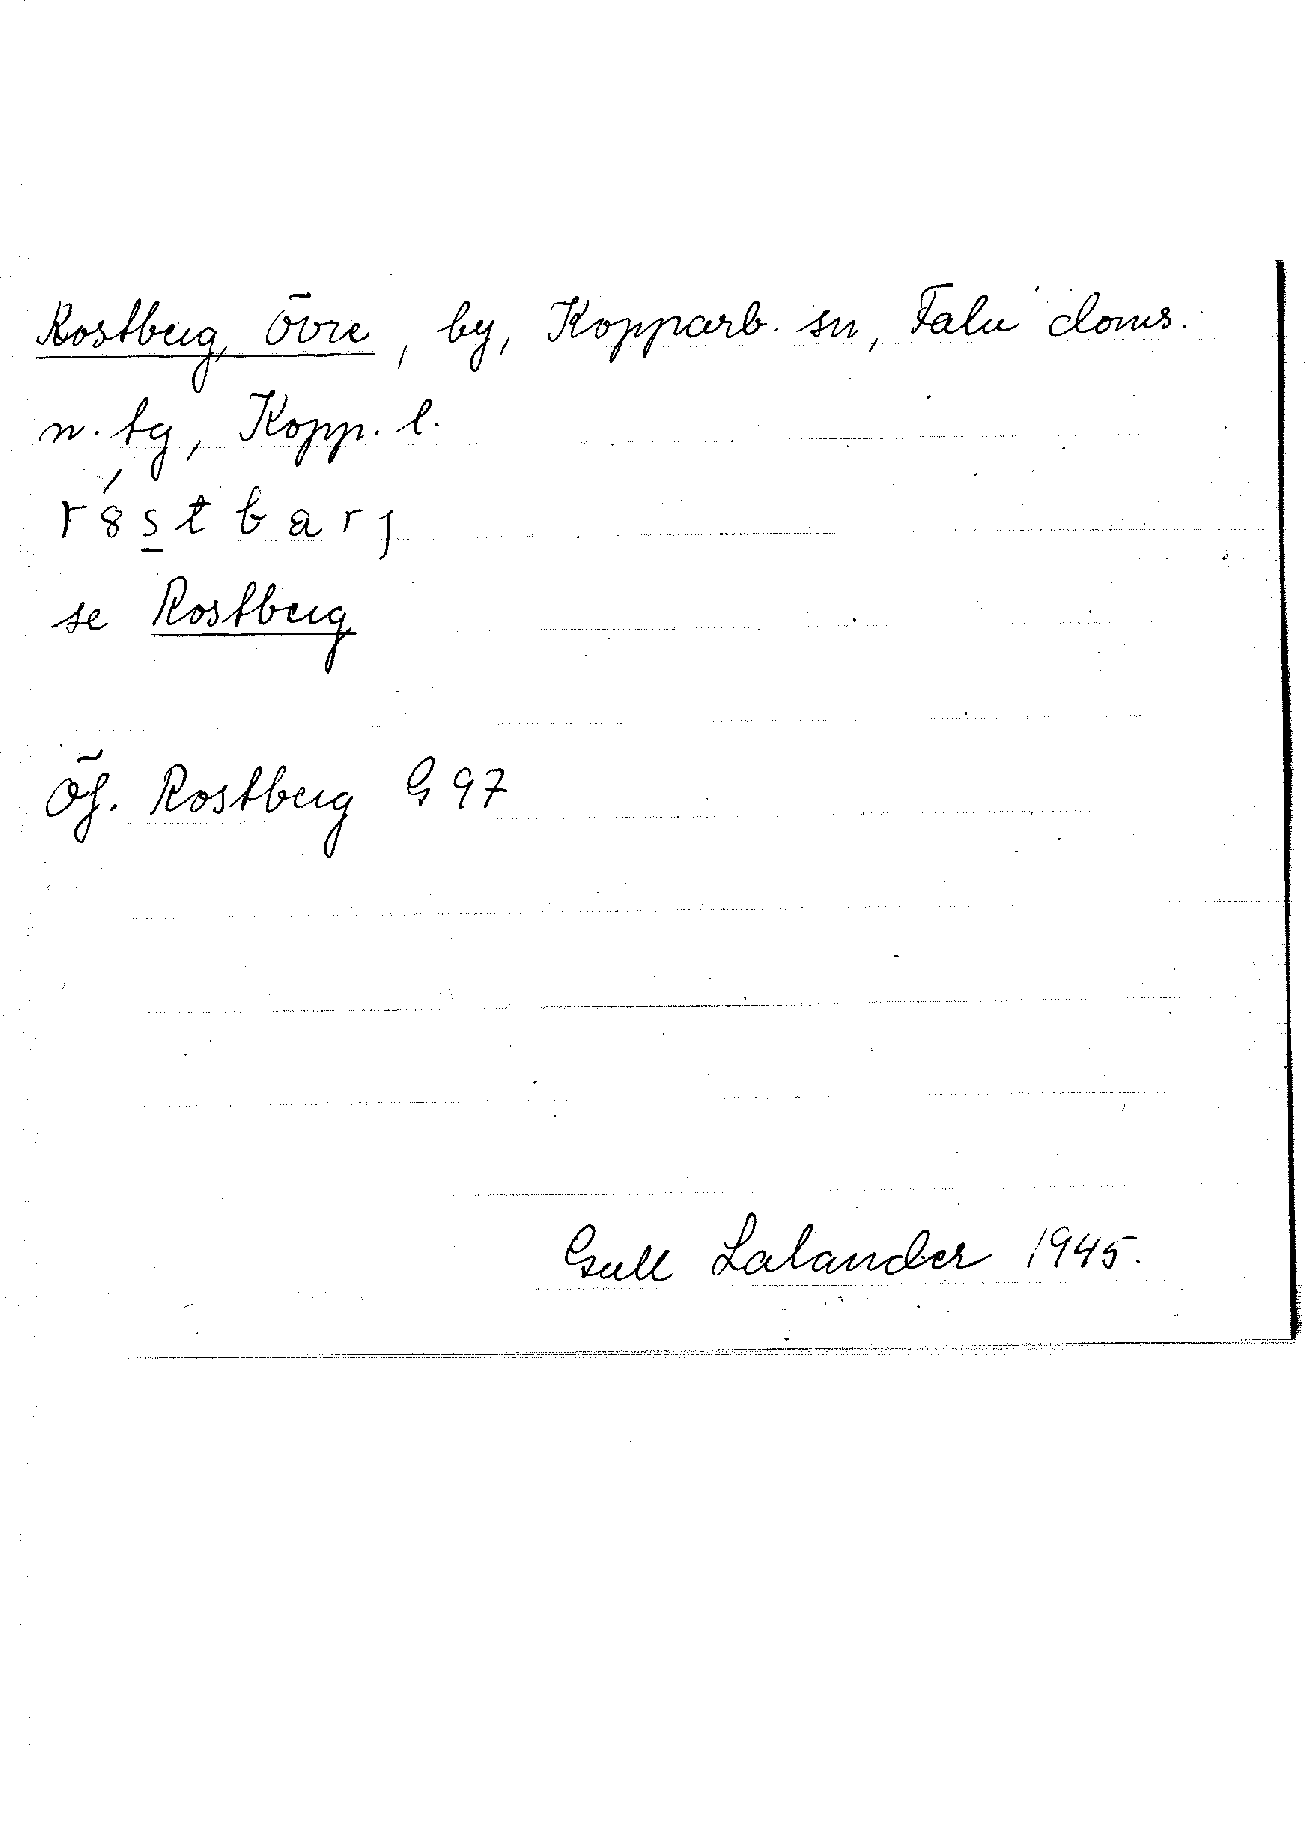 Rostberg, Övre, by, Kopparb. sn, Falu doms.
n. tg, Kopp. l.
r8́stbarj
se Rostberg
Öf. Rostberg G 97
Gull Lalander 1945.